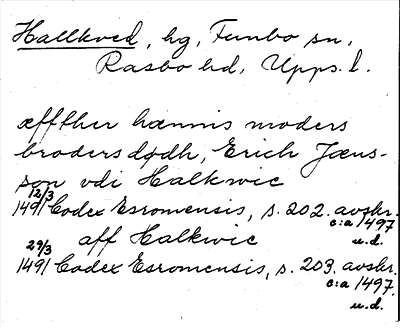 Hallkved, hg, Funbo sn,
Rasbo hd, Upps. l.
æffther hænnis moders
broders dødh, Erich Jæns-
son vdi Halkwic
12/3
1491 Codex Esromensis, s. 202. avskr.
c:a 1497
u.d.
aff Halkwic
29/3
1491 Codex Esromensis, s. 203. avskr.
c:a 1497.
u.d.